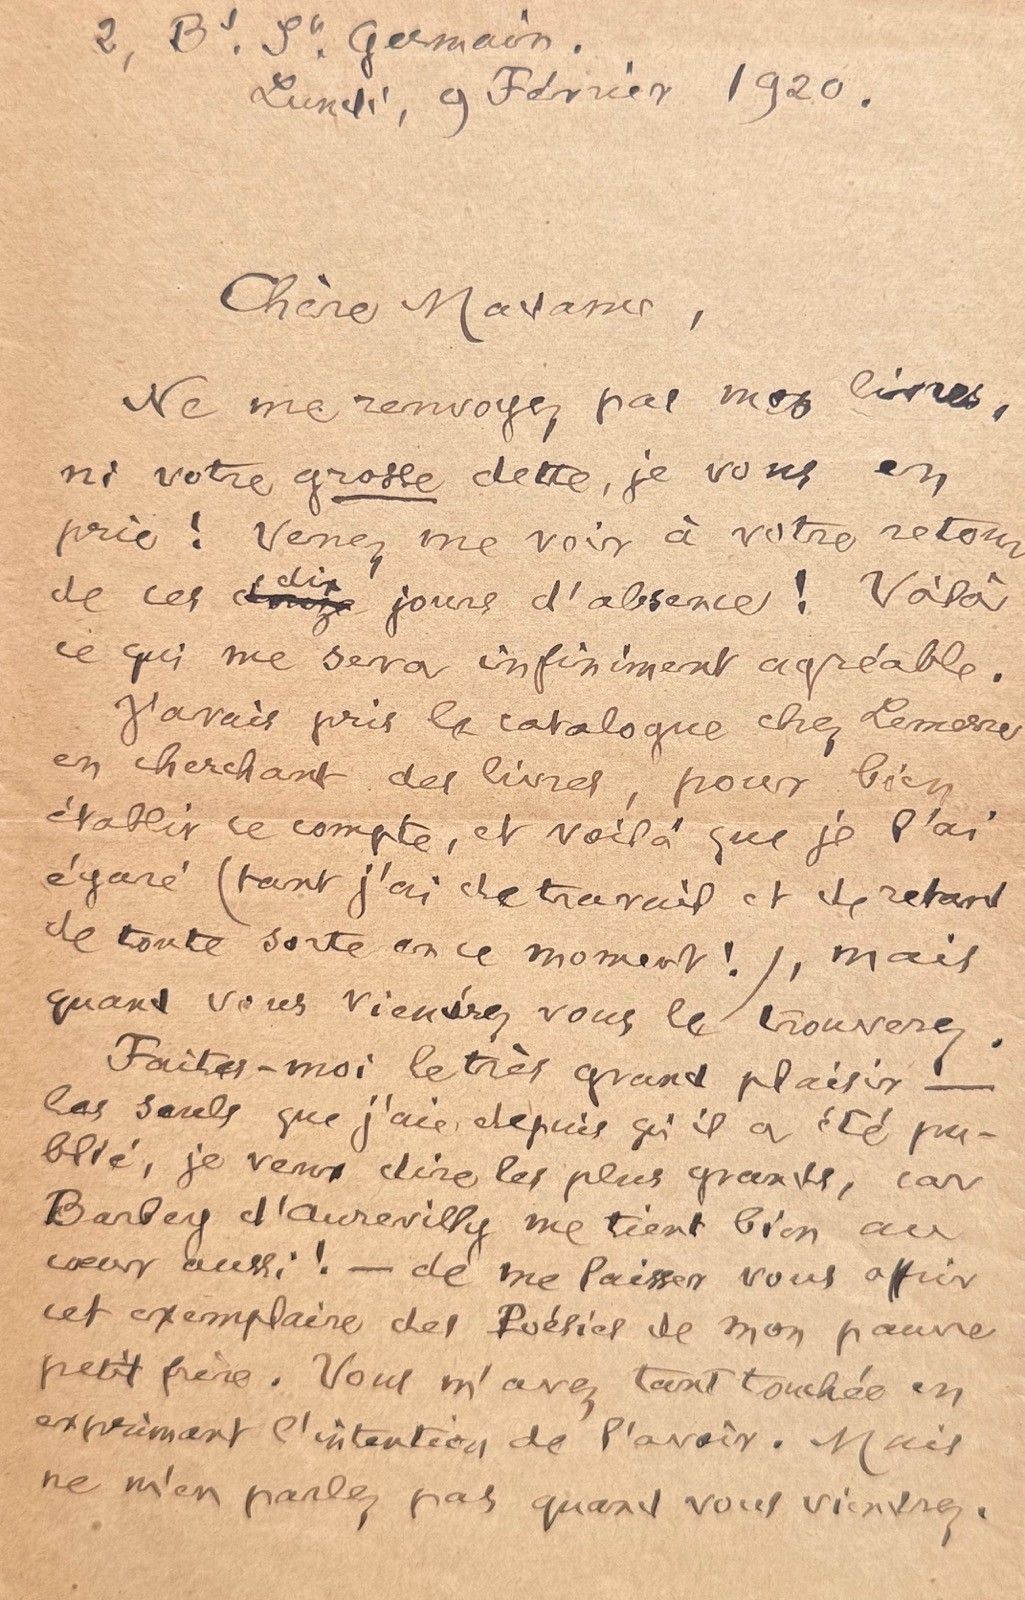 2, Bd. St. Germain.
Lundi, 9 Février 1920.
Chère Madame,
Ne me renvoyez pas mes livres,
ni votre grosse dette, je vous en
prie ! Venez me voir à votre retour
de ces dix jours d'absence ! Voilà
ce qui me sera infiniment agréable.
J'avais pris le catalogue chez Lemerre
en cherchant des livres, pour bien
établir ce compte, et voilà que je l'ai
égaré (tant j'ai de travail et de retard
de toute sorte en ce moment !), mais
quand vous viendrez vous le trouverez.
Faites-moi le très grand plaisir —
les seuls que j'aie depuis qu'il a été pu-
blié, je veux dire les plus grands, car
Barbey d'Aurevilly me tient bien au
cœur aussi ! — de me laisser vous offrir
cet exemplaire des Poésies de mon pauvre
petit frère. Vous m'avez tant touchée en
exprimant l'intention de l'avoir. Mais
ne m'en parlez pas quand vous viendrez.